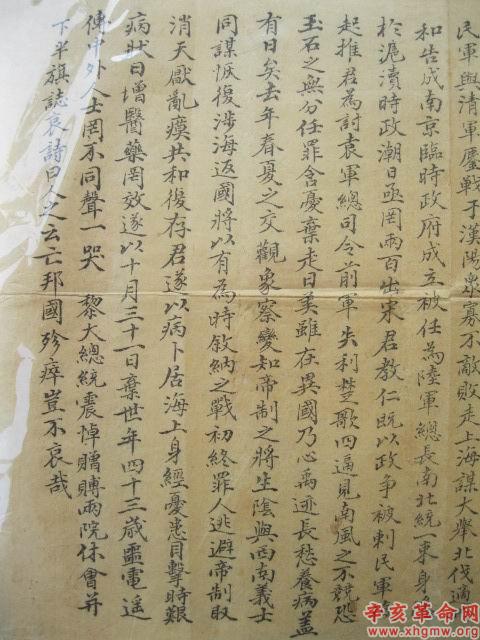 民軍與清軍鏖戰于漢陽眾寡不敵敗走上海謀大舉北伐適
和告成南京臨時政府成立被任為陸軍總長南北統一東身
於滬瀆時政潮日亟罔兩百出宋君教仁既以政爭被刺民軍
起推君為討袁軍總司令前軍失利楚歌四逼見南風之不競恐
玉石之無分任罪含憂棄走日美雖在異國乃心禹迹長愁養病蓋
有日矣去年春夏之交觀象察變知帝制之將生陰與西南義士
同謀恢復涉海返國將以有為時敘納之戰初終罪人逃避帝制取
消天厭亂瘼共和復存君遂以病卜居海上身經憂患目擊時艱
病狀日增醫藥罔效遂以十月三十一日棄世年四十三歲噩電遥
傳中外人士罔不同聲一哭 黎大總統震悼贈賻兩院休會并
下半旗誌哀詩曰人之云亡邦國殄瘁豈不哀哉
辛亥革命网
www.xhgmw.org